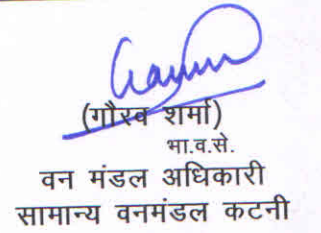 (गौरव शर्मा)
भा.व.से.
वन मंडल अधिकारी
सामान्य वनमंडल कटनी